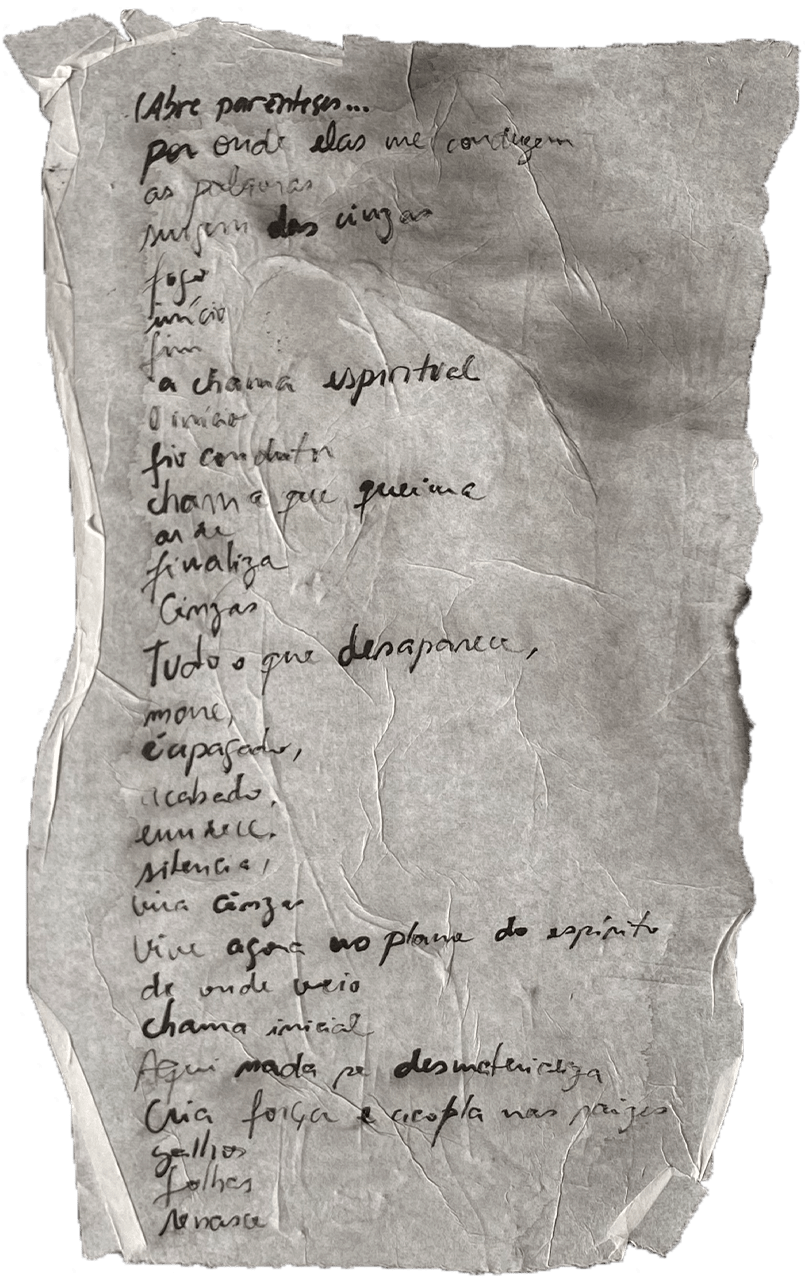 (Abre parênteses...
por onde elas me conduzem
as palavras
surgem das cinzas
fogo
início
fim
a chama espiritual
O início
fio condutor
chama que queima
arde
finaliza
Cinzas
Tudo o que desaparece,
morre,
é apagado,
acabado,
emudece.
silencia,
vira cinzas
Vive agora no plano do espírito
de onde veio
chama inicial
Aqui nada se desmaterializa
Cria força e acopla nas raízes
galhos
folhas
renasce